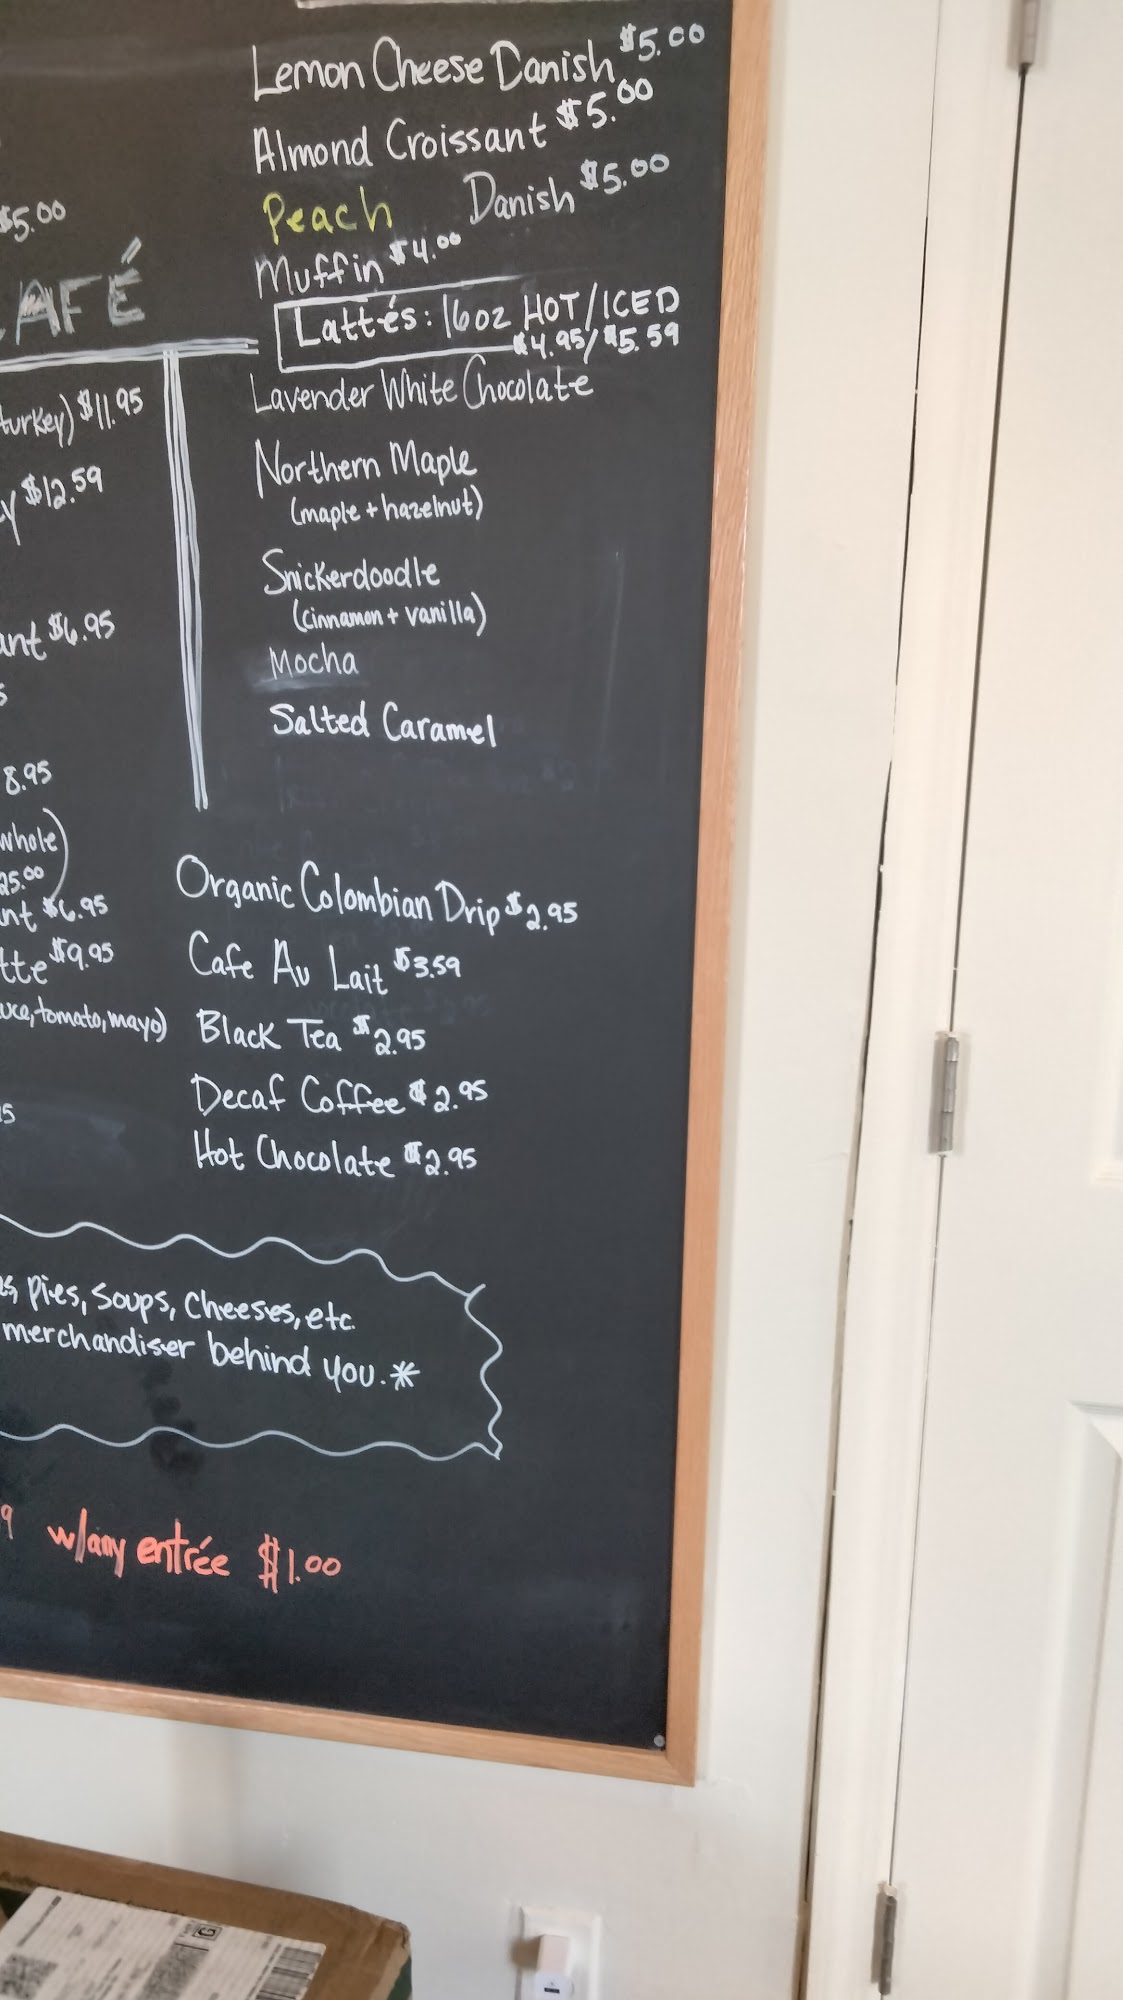 Lemon Cheese Danish $5.00
Almond Croissant $5.00
Peach Danish $5.00
Muffin $4.00
Lattés: 16oz HOT/ICED
$4.95/$5.59
Lavender White Chocolate
Northern Maple
(maple + hazelnut)
Snickerdoodle
(cinnamon + vanilla)
Mocha
Salted Caramel
$5.00
AFÉ
turkey) $11.95
y $12.59
ant $6.95
s
8.95
whole)
25.00
nt $6.95
tte $9.95
uce, tomato, mayo)
Organic Colombian Drip $2.95
Cafe Au Lait $3.59
Black Tea $2.95
Decaf Coffee $2.95
Hot Chocolate $2.95
s, Pies, Soups, Cheeses, etc.
merchandiser behind you.*
9 w/any entrée $1.00